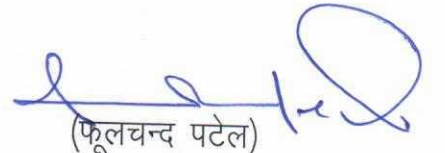 (फूलचन्द पटेल)